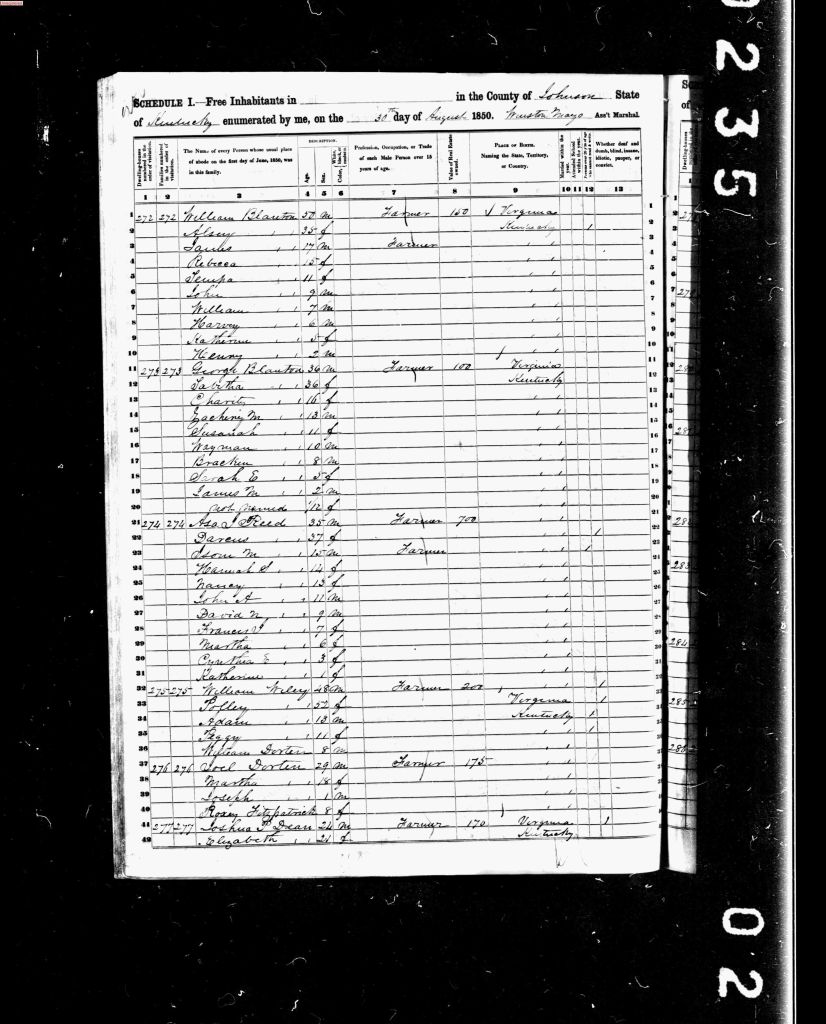 SCHEDULE I.—Free Inhabitants in in the County of Johnson State
of Kentucky enumerated by me, on the 30th day of August 1850. Winston Mayo Ass't Marshal.
DESCRIPTION.
Dwelling-houses numbered in the order of visitation.
Families numbered in the order of visitation.
The Name of every Person whose usual place of abode on the first day of June, 1850, was in this family.
Age.
Sex.
Color, White, black, or mulatto.
Profession, Occupation, or Trade of each Male Person over 15 years of age.
Value of Real Estate owned.
PLACE OF BIRTH. Naming the State, Territory, or Country.
Married within the year.
Attended School within the year.
Whether deaf and dumb, blind, insane, idiotic, pauper, or convict.
1 2 3 4 5 6 7 8 9 10 11 12 13
1 272 272 William Blanton 50 m Farmer 150 Virginia 1
2 Alsey " " 35 f Kentucky 1 2
3 James " " 17 m Farmer " " 3
4 Rebecca " " 15 f " " 4
5 Tempa " " 11 f " " 5
6 John " " 9 m " " 6
7 William " " 7 m " " 7
8 Harvey " " 6 m " " 8
9 Katherine " " 5 f " " 9
10 Henny " " 2 m " " 10
11 273 273 George Blanton 36 m Farmer 100 Virginia 11
12 Tabitha " " 36 f Kentucky 12
13 Charity " " 16 f " " 13
14 Zacheriy M " " 13 m " " 14
15 Susanah " " 11 f " " 15
16 Wayman " " 10 m " " 16
17 Bracken " " 8 m " " 17
18 Sarah E " " 5 f " " 18
19 James M " " 2 m " " 19
20 not named " /12 f " " 20
21 274 274 Asa J Reed 35 m Farmer 700 " " 21
22 Darcus " " 37 f " " 1 22
23 Isom M " " 15 m Farmer " " 1 23
24 Hannah S " " 14 f " " 24
25 Nancy " " 13 f " " 25
26 John A " " 11 m " " 26
27 David N " " 9 m " " 27
28 Francis " " 7 f " " 28
29 Martha " " 6 f " " 29
30 Cynthia E " " 3 f " " 30
31 Katherine " " 1 f " " 31
32 275 275 William Wiley 48 m Farmer 200 " " 1 32
33 Polley " " 52 f Virginia 1 33
34 Adam " " 13 m Kentucky 1 34
35 Peggy " " 11 f " " 1 35
36 William Dorten 8 m " " 36
37 276 276 Joel Dorten 29 m Farmer 175 " " 37
38 Martha " " 18 f " " 38
39 Joseph " " 1 m " " 39
40 Roxey Fitzpatrick 8 f " " 40
41 277 277 Joshua P Dean 24 m Farmer 170 Virginia 1 41
42 Elizabeth " " 21 f Kentucky 42
0235
02